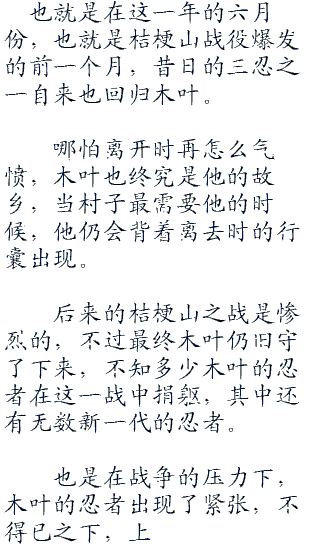 也就是在这一年的六月
份，也就是桔梗山战役爆发
的前一个月，昔日的三忍之
一自来也回归木叶。
哪怕离开时再怎么气
愤，木叶也终究是他的故
乡，当村子最需要他的时
候，他仍会背着离去时的行
囊出现。
后来的桔梗山之战是惨
烈的，不过最终木叶仍旧守
了下来，不知多少木叶的忍
者在这一战中捐躯，其中还
有无数新一代的忍者。
也是在战争的压力下，
木叶的忍者出现了紧张，不
得已之下，上